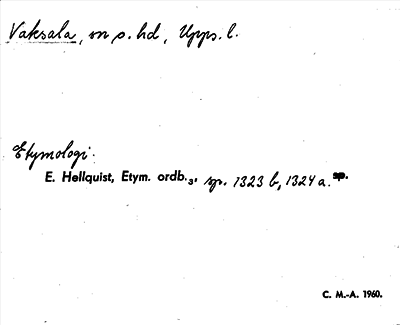 Vaksala, sn o. hd, Upps. l.
Etymologi.
E. Hellquist, Etym. ordb.₃, sp. 1323 b, 1324 a. sp.
C. M.-A. 1960.